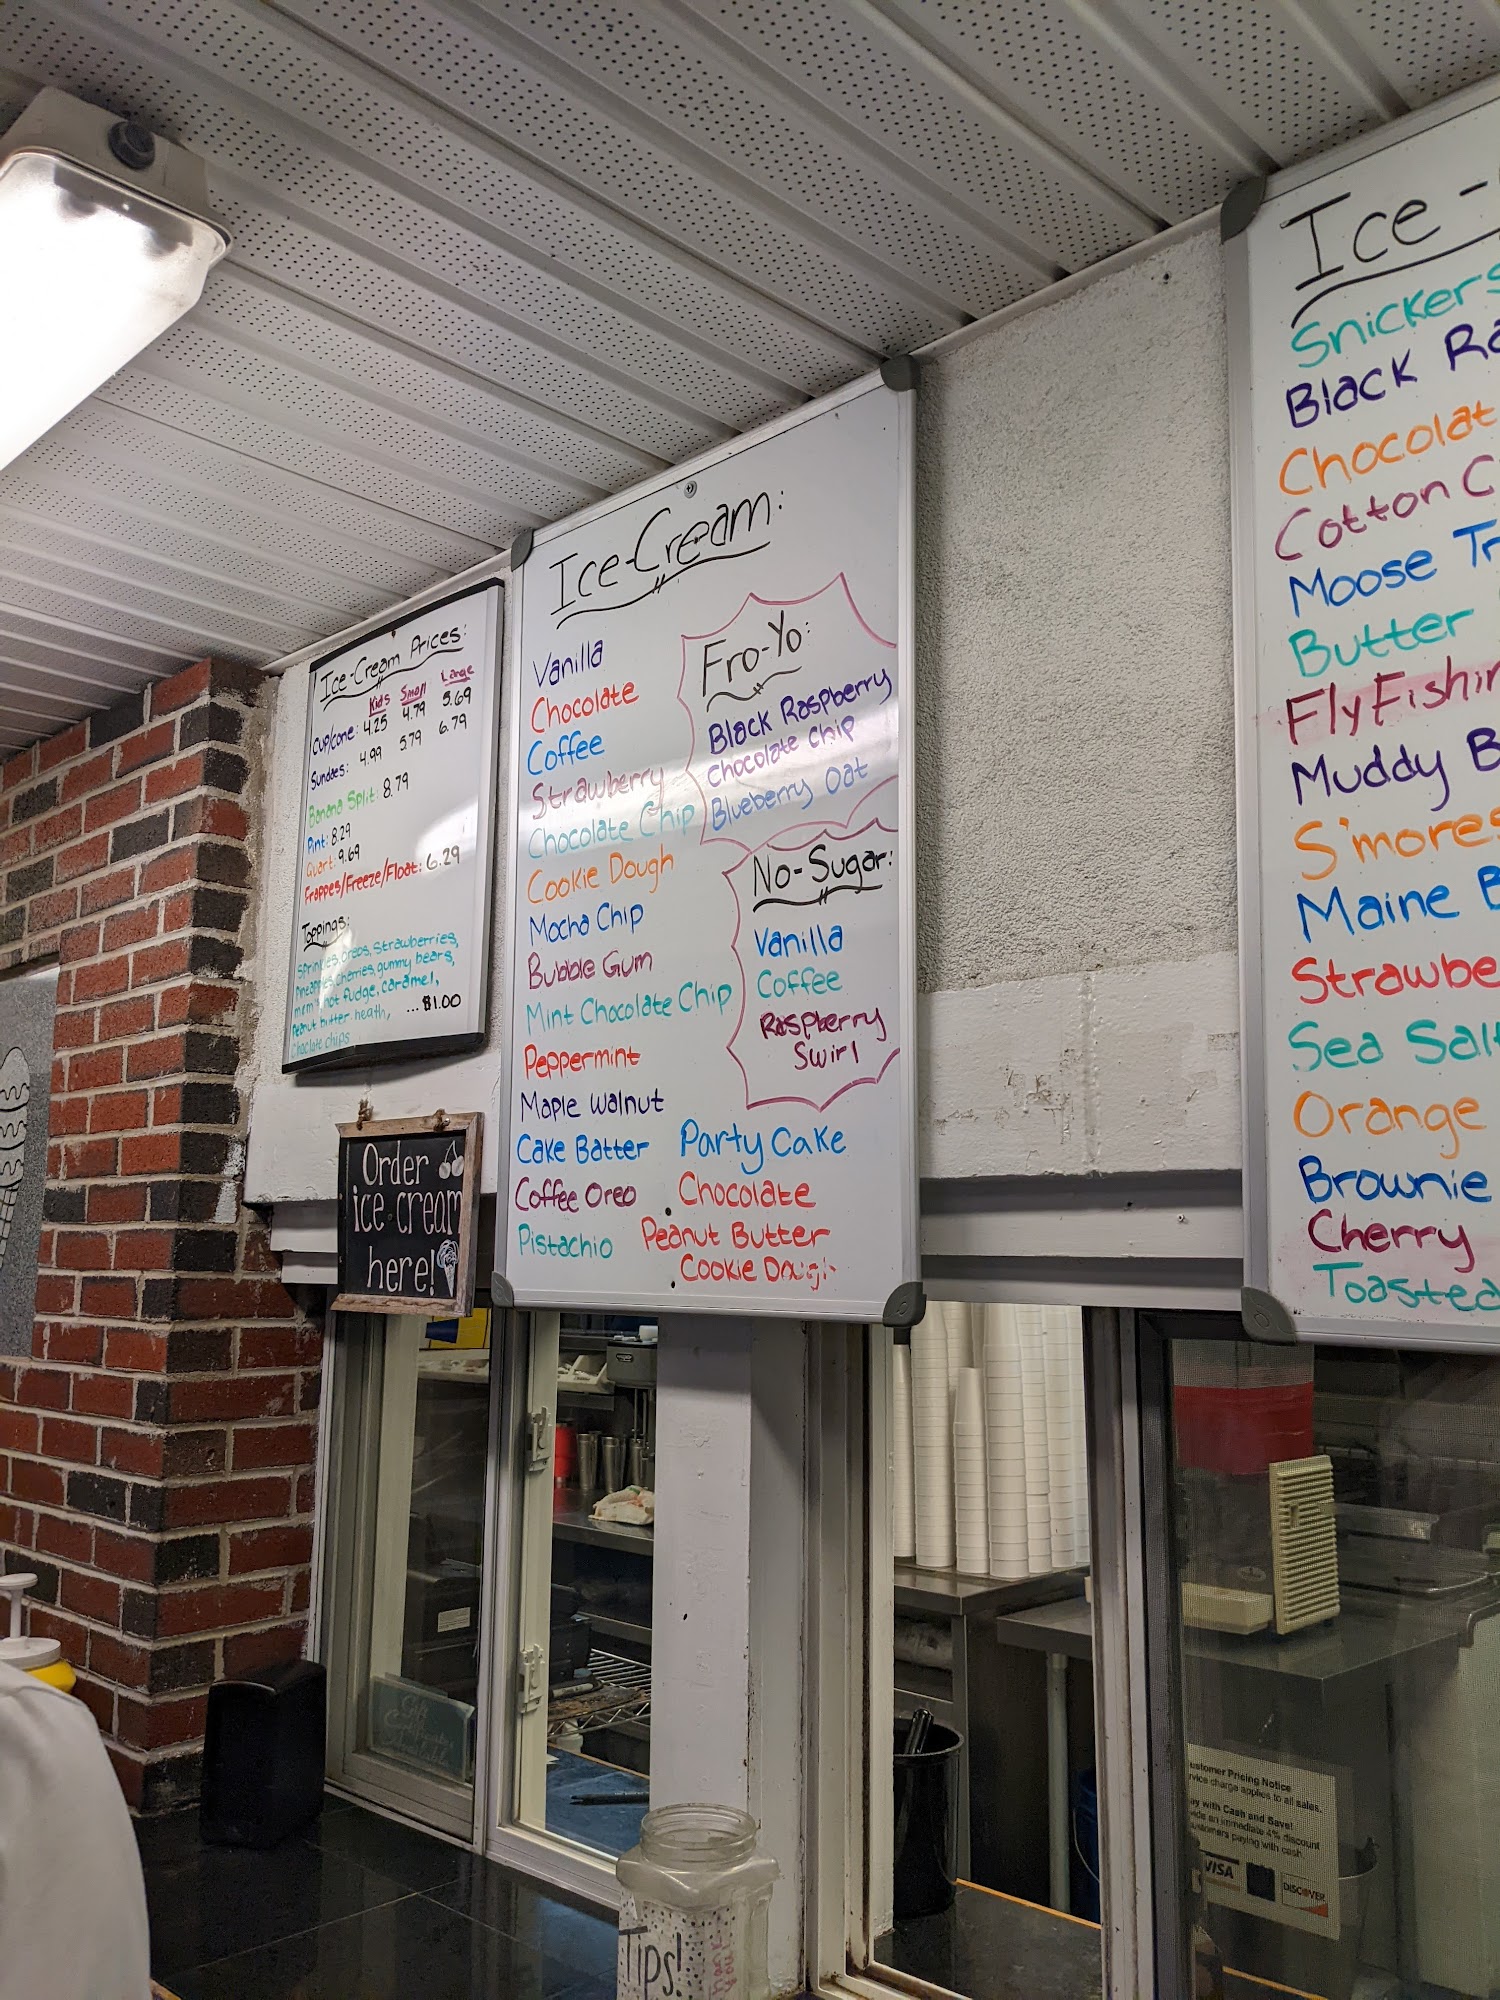 Ice-Cream Prices:
Kids Small Large
Cup/cone: 4.25 4.79 5.69
Sundaes: 4.99 5.79 6.79
Banana Split: 8.79
Pint: 8.29
Quart: 9.69
Frappes/Freeze/Float: 6.29
Toppings:
Sprinkles, oreos, strawberries,
Pineapple, cherries, gummy bears,
m+m's hot fudge, caramel,
Peanut butter, heath, ... $1.00
Choclate chips
Order
ice cream
here!
Ice-Cream:
Vanilla
Chocolate
Coffee
Strawberry
Chocolate Chip
Cookie Dough
Mocha Chip
Bubble Gum
Mint Chocolate Chip
Peppermint
Maple Walnut
Cake Batter
Coffee Oreo
Pistachio
Party Cake
Chocolate
Peanut Butter
Cookie Dough
Fro-Yo:
Black Raspberry
Chocolate Chip
Blueberry Oat
No-Sugar:
Vanilla
Coffee
Raspberry
Swirl
Ice-
Snickers
Black Ra
Chocolat
Cotton C
Moose Tr
Butter
FlyFishin
Muddy B
S'mores
Maine B
Strawbe
Sea Salt
Orange
Brownie
Cherry
Toasted
Gift
Certificates
Available
ustomer Pricing Notice
rvice charge applies to all sales.
ay with Cash and Save!
vide an immediate 4% discount
ustomers paying with cash
VISA
DISCOVER
Tips!
Thank
You